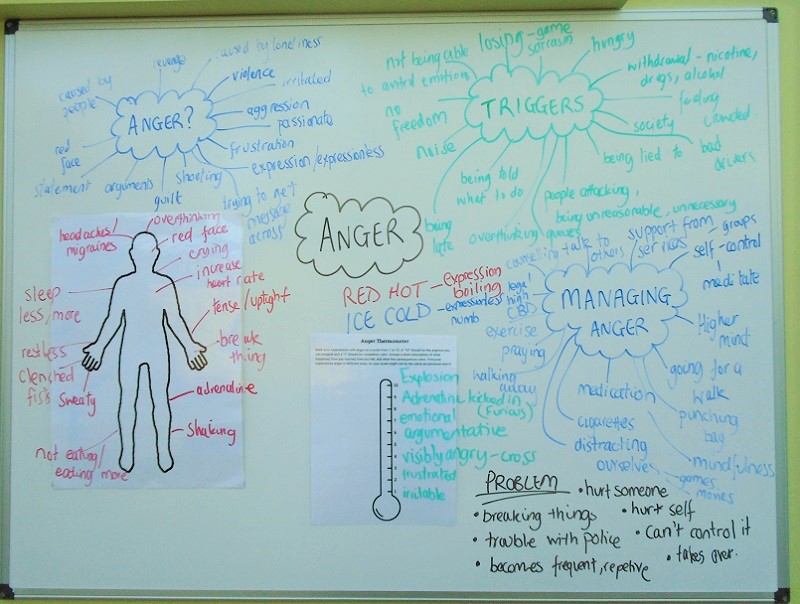 ANGER?
revenge
caused by loneliness
violence
irritated
aggression
passionate
frustration
expression/expressionless
shooting
trying to get
message
across
guilt
arguments
statement
red
face
caused by
people
TRIGGERS
not being able
to control emotions
losing - game
sarcasm
hungry
withdrawal - nicotine,
drugs, alcohol
crowded
society
bad
drivers
being lied to
people attacking,
being unreasonable, unnecessary
queues
overthinking
being told
what to do
being
late
noise
no
freedom
ANGER
RED HOT - Expression
boiling
ICE COLD - expressionless
numb
headaches/
migraines
overthinking
red face
crying
increase
heart rate
tense/uptight
break
thing
adrenaline
Shaking
sleep
less/more
restless
Clenched
fists
Sweaty
not eating/
eating more
Anger Thermometer
10
Explosion
Adrenaline kicked in
(furious)
emotional
argumentative
visibly angry - cross
frustrated
irritable
MANAGING
ANGER
counselling
talk to
others
support from
services
groups
self-control
meditate
Higher
mind
going for a
walk
punching
bag
mindfulness
games
movies
medication
cigarettes
distracting
ourselves
walking
away
praying
exercise
legal
high
CBD
PROBLEM
• hurt someone
• breaking things
• hurt self
• trouble with police
• Can't control it
• becomes frequent, repetive
• takes over.